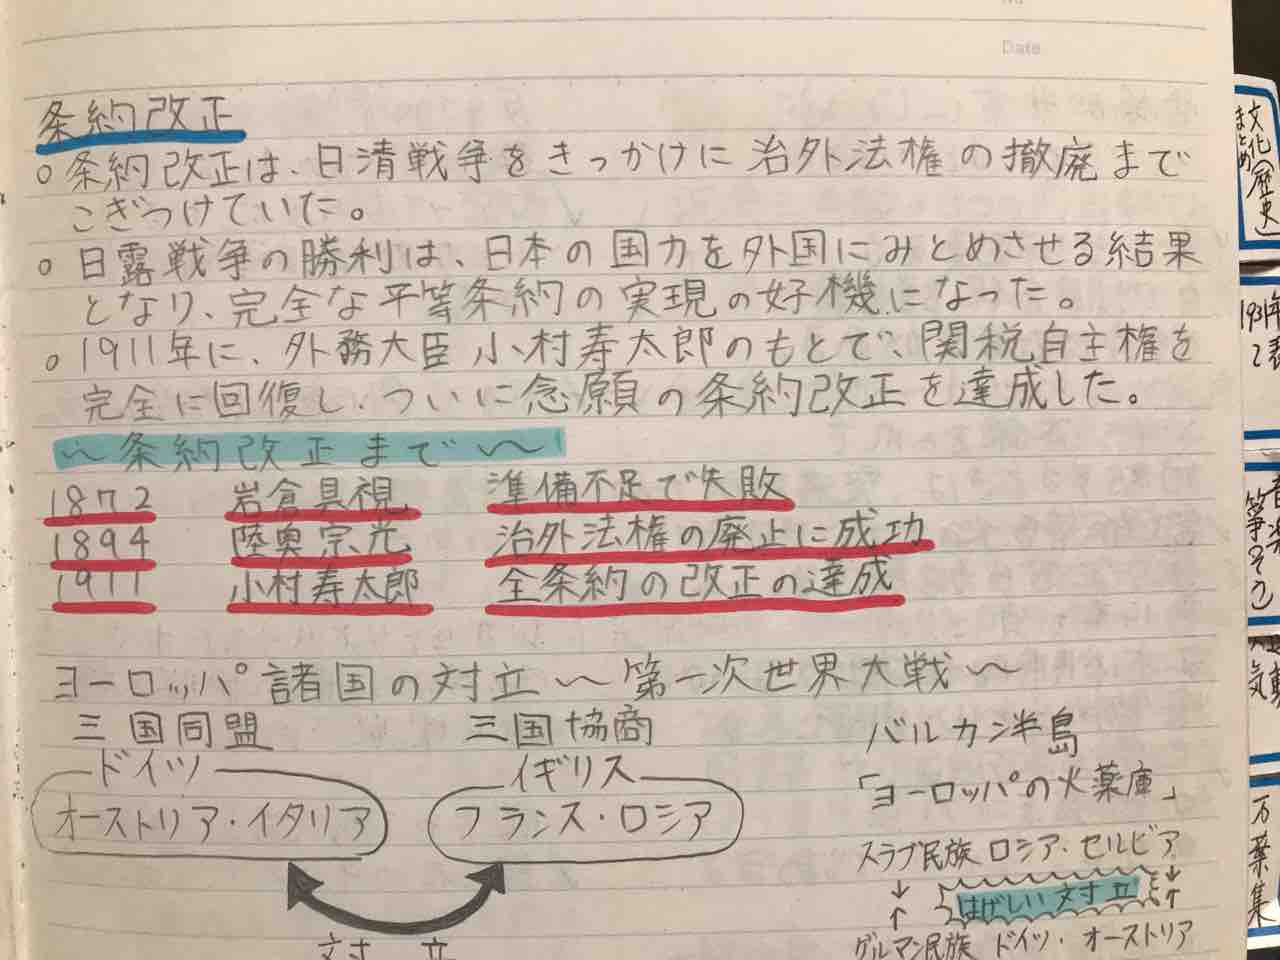 Date
条約改正
○条約改正は、日清戦争をきっかけに治外法権の撤廃まで
こぎつけていた。
○日露戦争の勝利は、日本の国力を外国にみとめさせる結果
となり、完全な平等条約の実現の好機になった。
○1911年に、外務大臣小村寿太郎のもとで、関税自主権を
完全に回復し、ついに念願の条約改正を達成した。
〜条約改正まで〜
1872 岩倉具視 準備不足で失敗
1894 陸奥宗光 治外法権の廃止に成功
1911 小村寿太郎 全条約の改正の達成
ヨーロッパ諸国の対立〜第一次世界大戦〜
三国同盟 三国協商 バルカン半島
ドイツ イギリス
オーストリア・イタリア フランス・ロシア 「ヨーロッパの火薬庫」
スラブ民族 ロシア・セルビア
↓ はげしい対立 ↓
↑ ↑
対立 ゲルマン民族 ドイツ・オーストリア
文化(歴史)
まとめ
1931年
万葉集